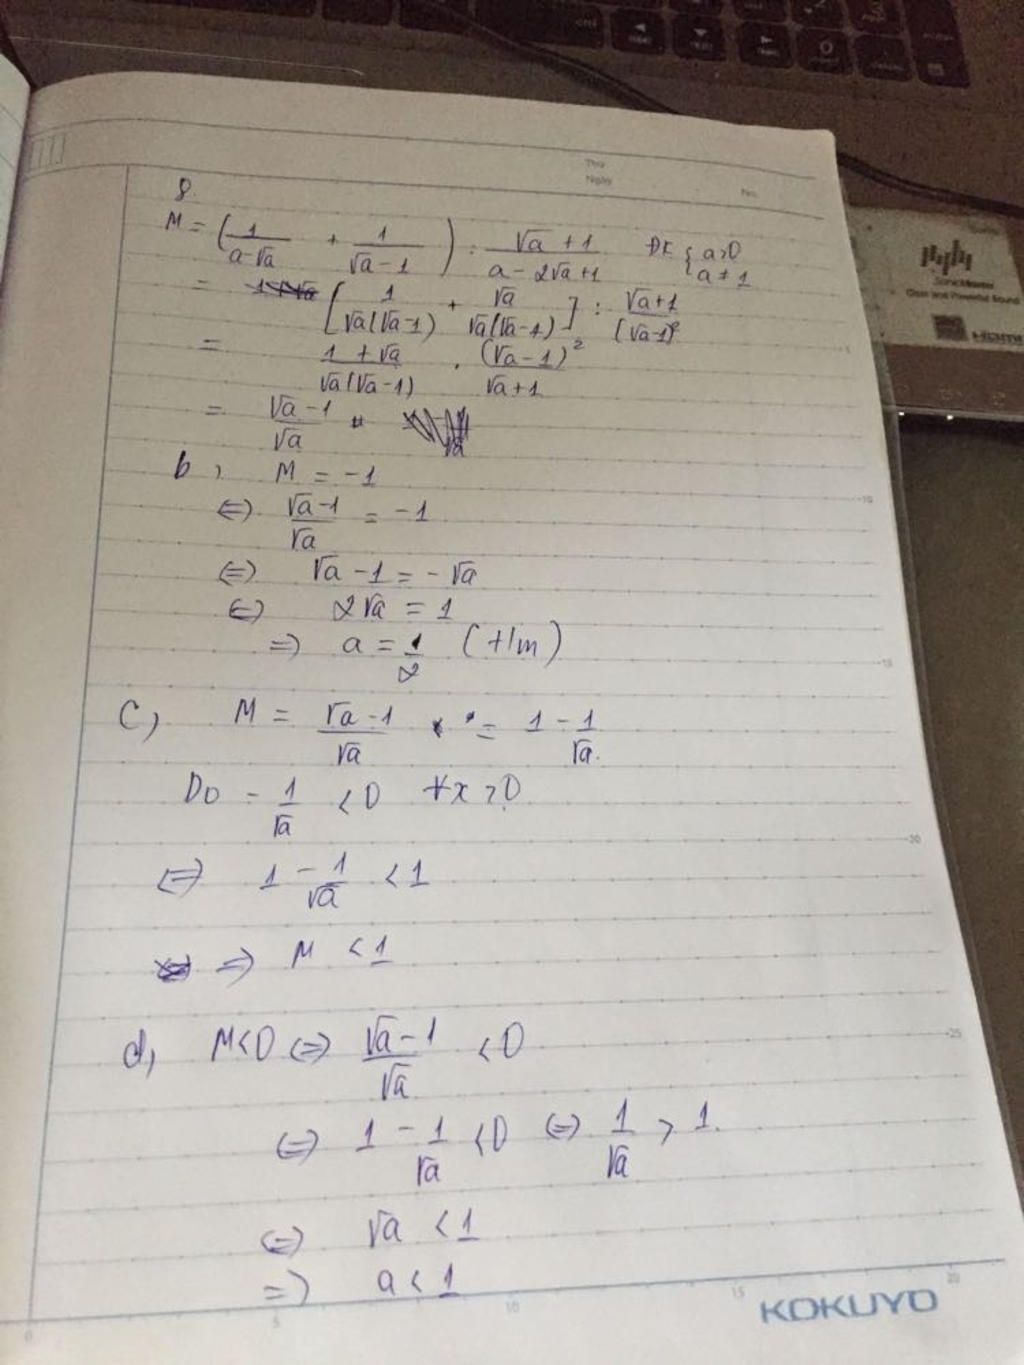 Thứ
Ngày No.
8.
M = (1/(a-√a) + 1/(√a-1)) : (√a+1)/(a-2√a+1) ĐK { a>0
{ a≠1
= [1/(√a(√a-1)) + √a/(√a(√a-1))] : (√a+1)/(√a-1)²
= (1+√a)/(√a(√a-1)) . (√a-1)²/(√a+1)
= (√a-1)/√a
b, M = -1
⇔ (√a-1)/√a = -1
⇔ √a-1 = -√a
⇔ 2√a = 1
⇒ a = 1/2 (t/m)
C, M = (√a-1)/√a = 1 - 1/√a
Do -1/√a < 0 ∀x>0
⇔ 1 - 1/√a < 1
⇒ M < 1
d, M<0 ⇔ (√a-1)/√a < 0
⇔ 1 - 1/√a < 0 ⇔ 1/√a > 1.
⇔ √a < 1
⇒ a < 1
KOKUYO
SonicMaster
HDMI